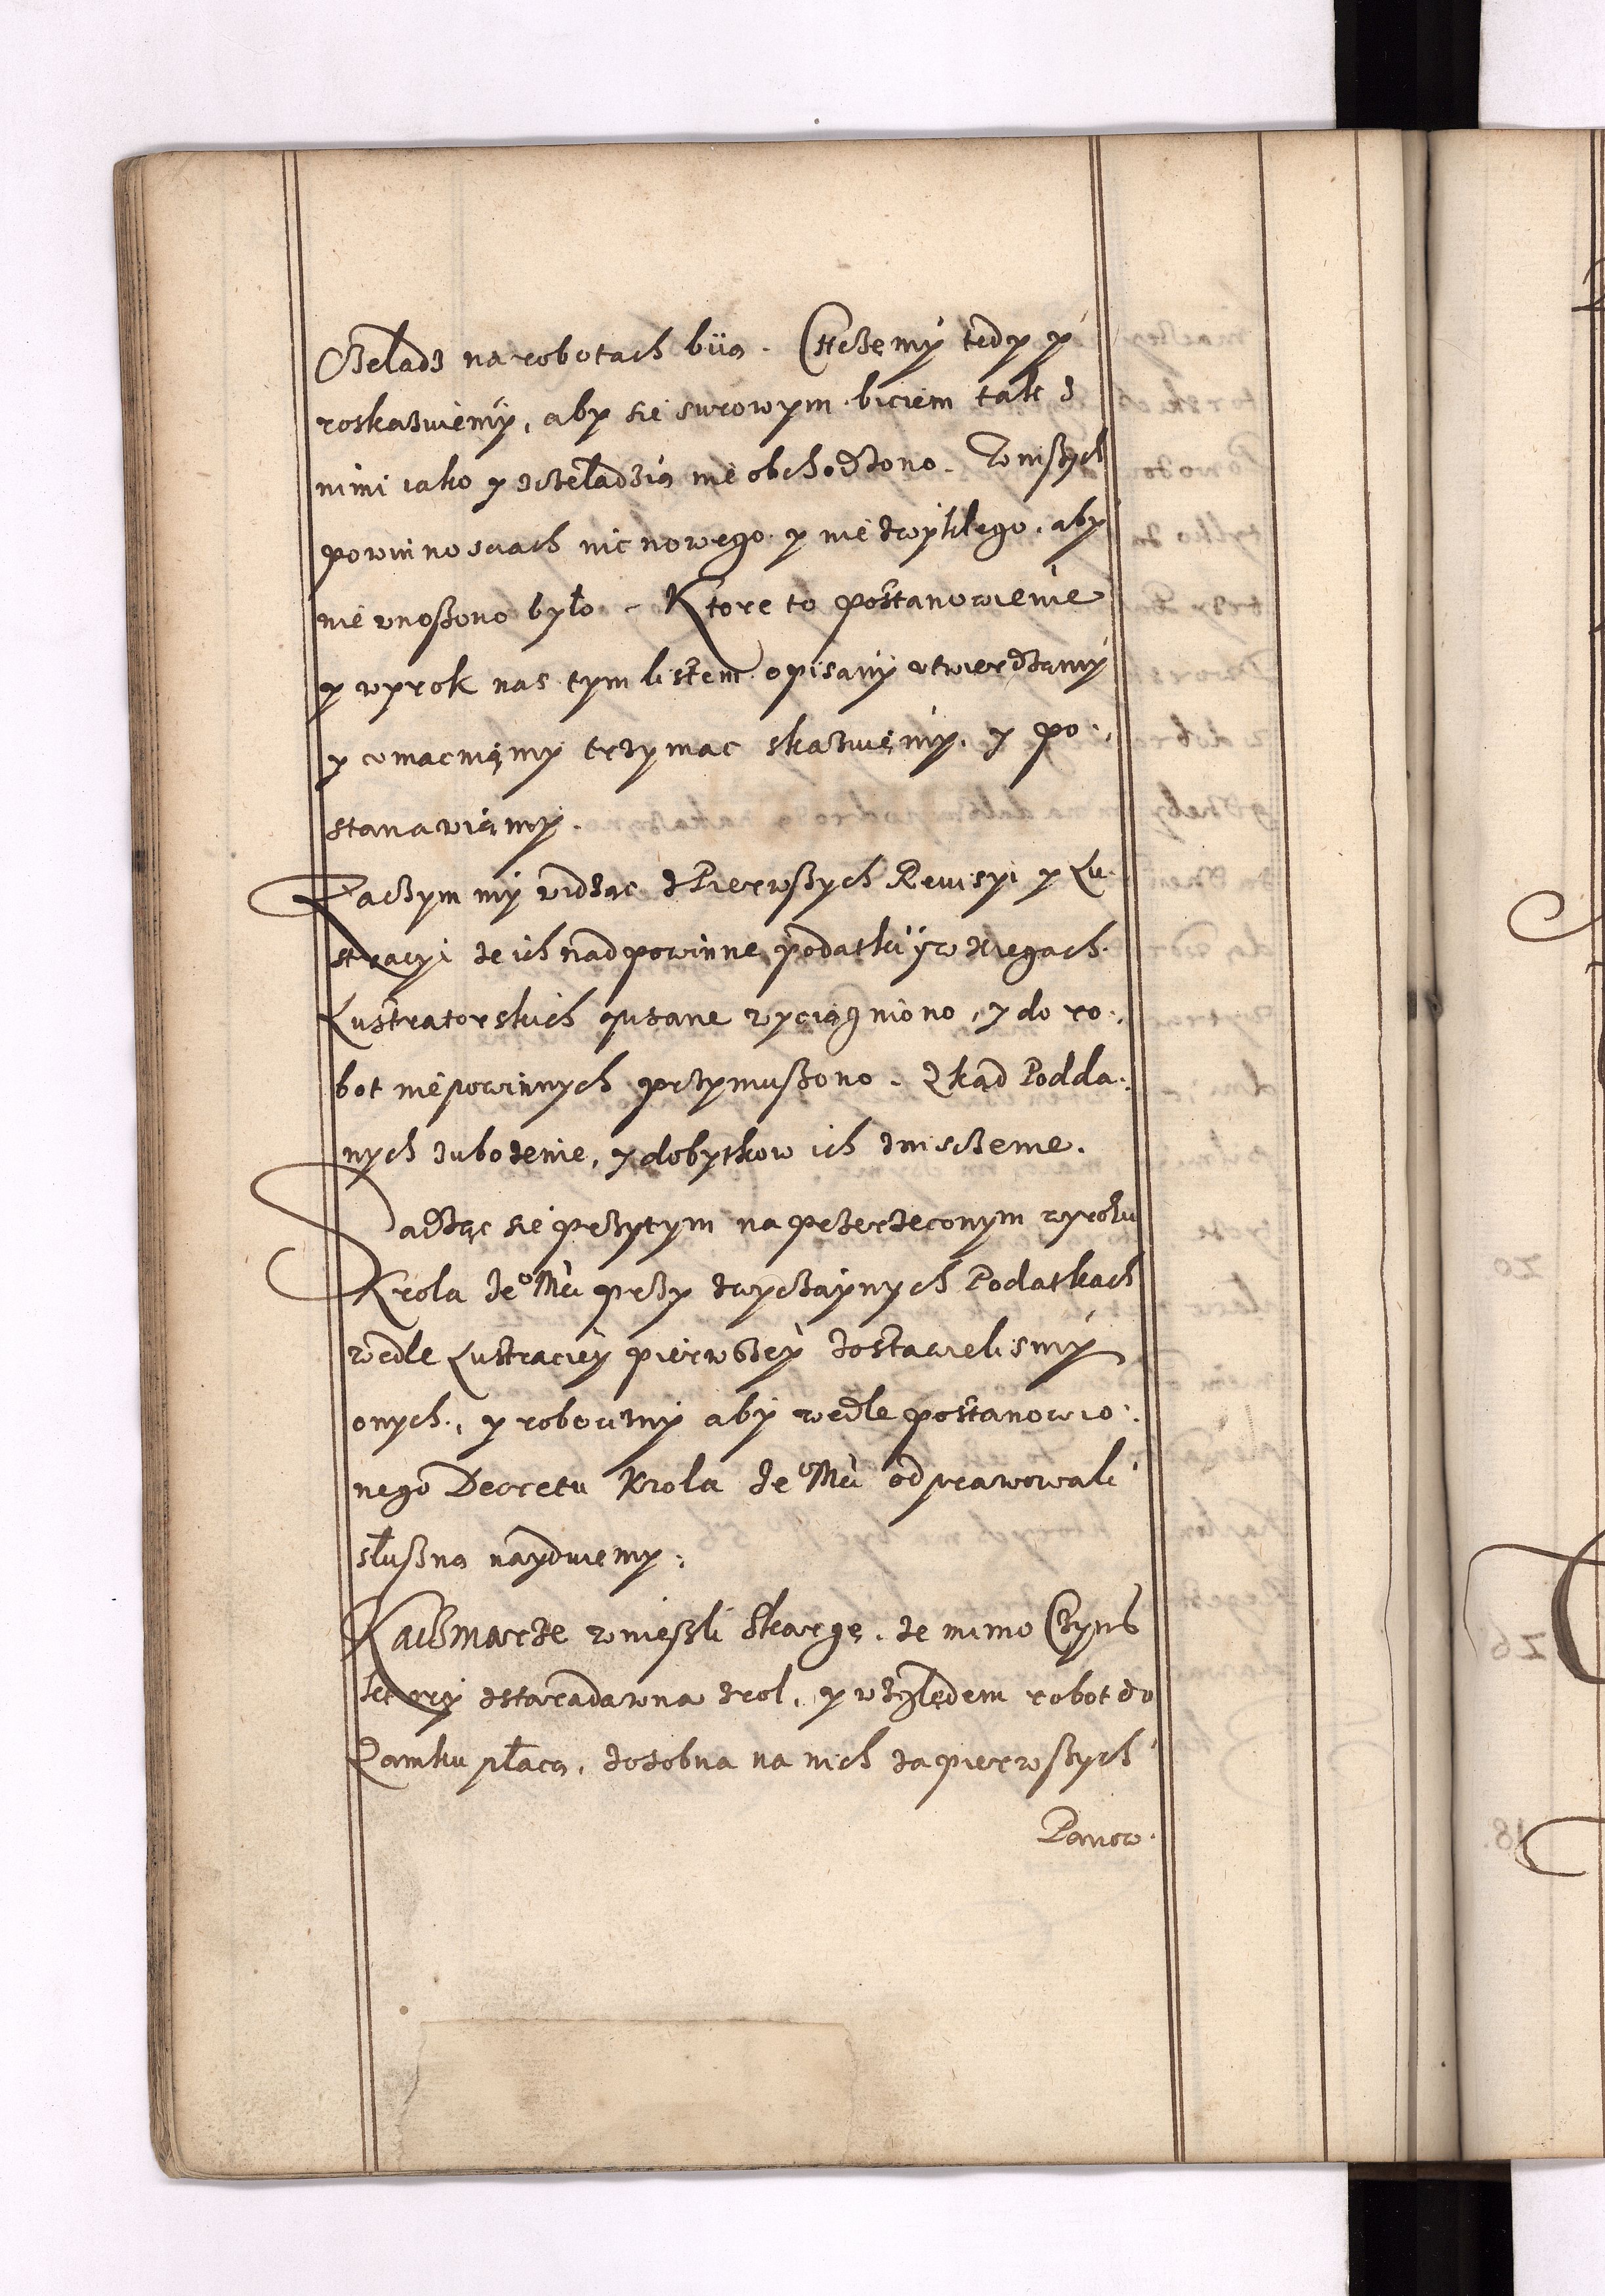 Czeladz na robotach biią. Chcemy tedy y
roskazuiemy, aby się surowym biciem tak z
nimi iako y zczeladzią nie obchodzono. Winszych
powinnosciach nic nowego y nie zwykłego, aby
nie wnoszono było. Ktore to postanowienie
y wyrok nas tym listem opisany utwierdzamy
y umacniamy trzymac skazuiemy, y po:
stanawiamy.
Zaczym my widząc z Pierwszych Rewisyi y Lu:
stracyi ze ich nad powinne podatki yw xiegach
Lustratorskich opisane wyciągniono, y do ro:
bot niepowinnych przymuszono. Zkąd Podda:
nych zubożenie, y dobytkow ich zniszczenie.
Sadząc się przytym na przerzeconym wyroku
Krola Je° Mci przy zwyczaynych Podatkach
wedle Lustraciey pierwszey zostawielismy
onych, y robocizny aby wedle postanowio:
nego Decretu Krola Je° Mci odprawowali
słuszną nayduiemy.
Kaczmarze wnieszli Skargę, ze mimo Czynsz
ktory zstaradawna zrol, y względem robot do
Zamku płacą, zosobna na nich za pierwszych
Panow.